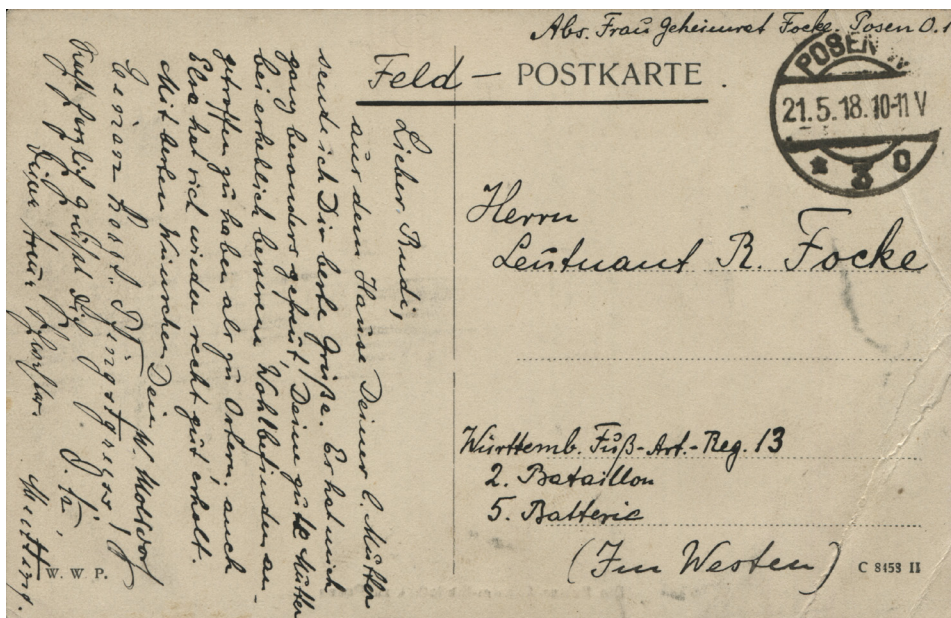 Abs. Frau Geheimrat Focke. Posen O.1
Feld – POSTKARTE
POSEN
21.5.18.10-11 V
* 3 o
Herrn
Leutnant R. Focke
Württemb. Fuß-Art.-Reg. 13
2. Bataillon
5. Batterie
(Im Westen)
C 8453 II
W. W. P.
Lieber Rudi,
aus dem Hause Deiner l. Mutter
sende ich Dir beste Grüße. Es hat mich
ganz besonders gefreut, Deine gute Mutter
bei erheblich besserem Wohlbefinden an-
getroffen zu haben als zu Ostern, auch
Elsa hat sich wieder recht gut erholt.
Mit besten Wünschen Dein
Pfingstgruss!
Recht herzlich grüßt Dich
Deine treue Schwester.